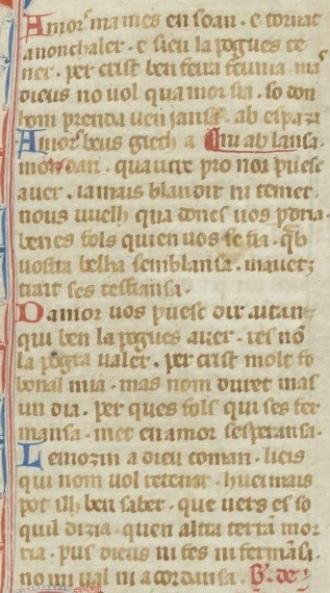 Amors ma mes en soan . e tornat
a nonchaler . e sieu la pogues te
ner . per crist ben feira semia mas
dieus no uol qua mor sia . so don
hom prenda ueniansa . ab espaza
Amors beus giech a ni ab lansa .
mon dan . quautre pro non puesc
auer . ia mais blandir ni temer
nous vuelh qua donc uos pdria .
ben es fols qui en uos se fia . qab
uostra belha semblansa . mauetz
trait ses desfiansa .
Damor uos puesc dir aitan
qui ben la pogues auer . res no
la pogra ualer . per crist molt fo
bona la mia . mas nom duret mas
un dia . per ques fols qui ses fer
mansa . met en amor sesperansa .
Lemozin a dieu coman . lieis
qui nom uol retener . hueimais
pot ilh ben saber . que uers es so
quil dizia . quen altra terra mor
ria . pus dieus ni fes ni fermansa .
no mi ual ni acordansa . B. de